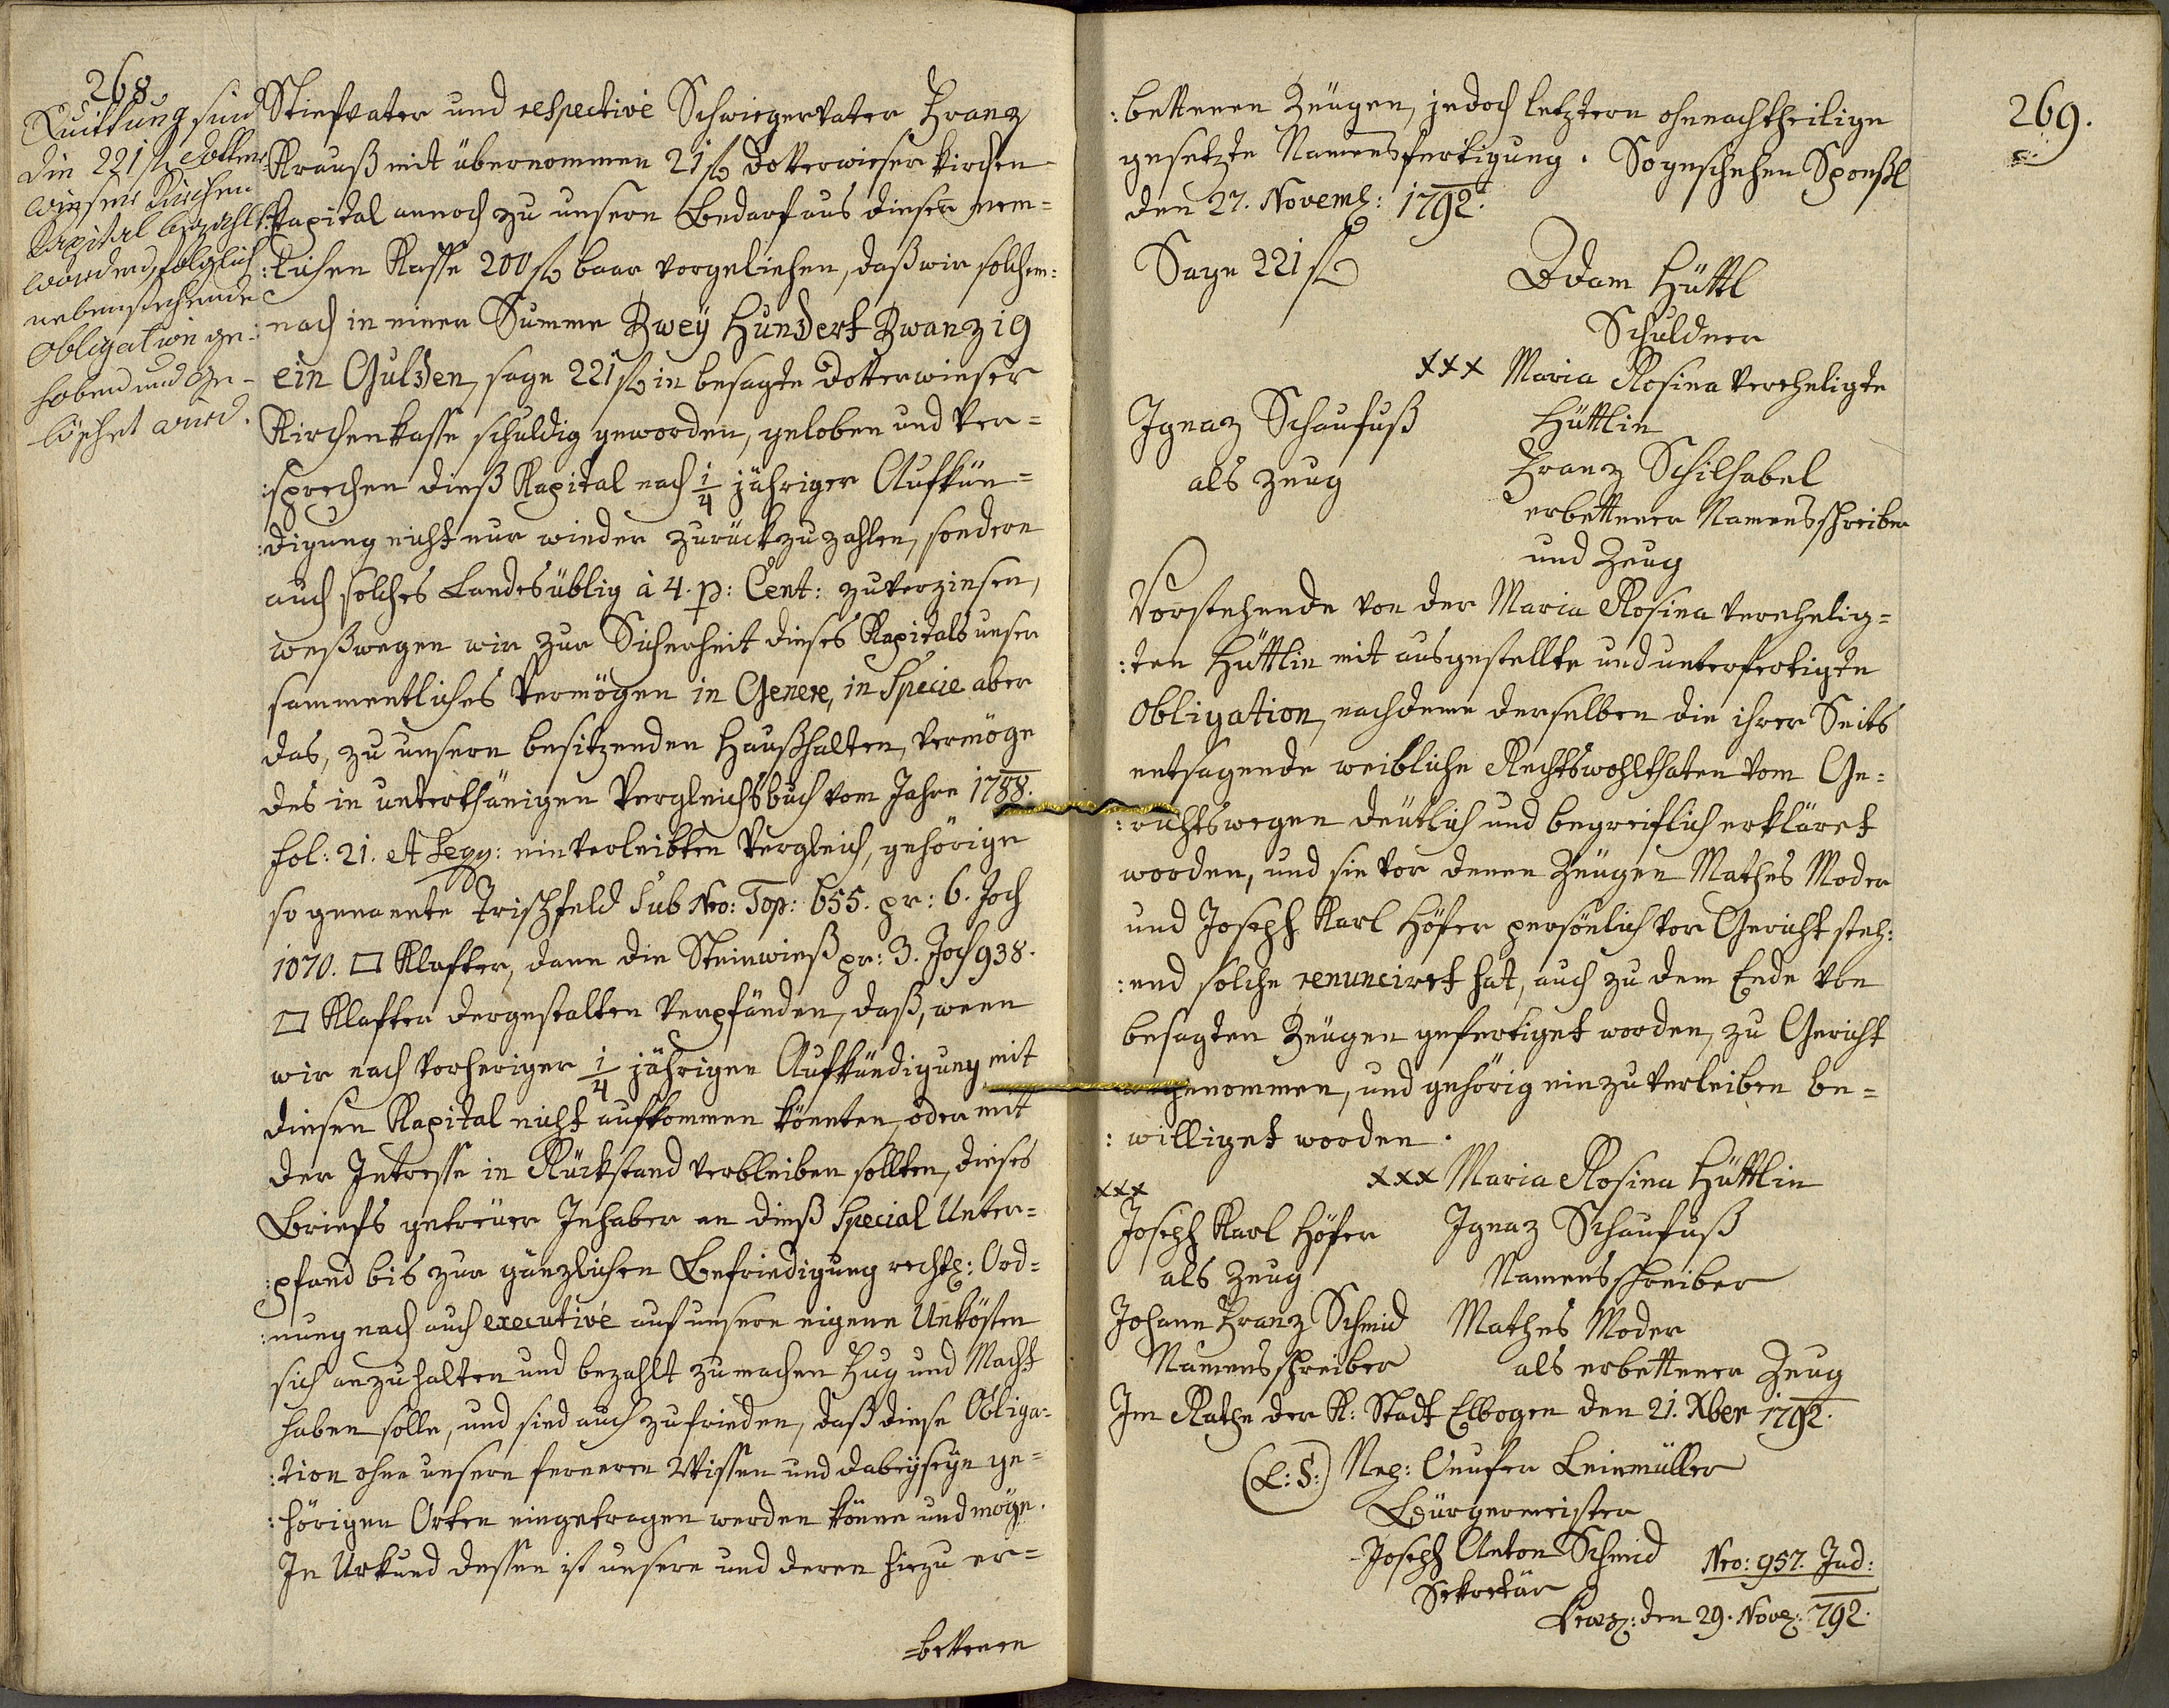 268
Quittung sind
die 221 fl Dotter
wieser Kirchen
Kapital bezahlt
worden, folglich
nebenstehende
Obligation ge-
hoben und ge-
löschet wird.
Stiefvater und respective Schwiegervater Franz
Krauß mit übernommen 21 fl Dotterwieser Kirchen
Kapital annoch zu unsern Bedarf aus dieser nem=
:lichen Kasse 200 fl baar vorgeliehen, daß wir solchem:
nach in einer Summe Zweÿ Hundert Zwanzig
ein Gulden, sage 221 fl in besagte Dotterwieser
Kirchenkasse schuldig geworden, geloben und ver=
:sprechen dieß Kapital nach 1/4 jähriger Aufkün=
:digung nicht nur wieder zurückzuzahlen, sondern
auch solches Landesüblig à 4. p: Cent: zuverzinsen,
weßwegen wir zur Sicherheit dieses Kapitals unser
sammentliches Vermögen in Genere, in Specie aber
das, zu unsern besitzenden Haußhalten, vermöge
des in unterthänigen Vergleichsbuch vom Jahre 1788.
fol: 21. et seqq: einverleibten Vergleich, gehörige
so genannte Trischfeld sub Nro: Top: 655. pr: 6. Joch
1070. □ Klafter, dann die Steinwieß pr: 3. Joch 938.
□ Klafter dergestalten verpfänden, daß, wenn
wir nach vorheriger 1/4 jährigen Aufkündigung mit
diesen Kapital nicht aufkommen könnten, oder mit
der Intresse in Rückstand verbleiben sollten, dieses
Briefs getreüer Inhaber an dieß Special Unter=
:pfand bis zur gänzlichen Befriedigung rechtl: Ord=
:nung nach auch executivé auf unsere eigene Unkösten
sich anzuhalten und bezahlt zumachen Fug und Macht
haben solle, und sind auch zufrieden, daß diese Obliga=
:tion ohne unsern fernern Wissen und dabeÿseÿn ge=
:hörigen Orten eingetragen werden könne und möge.
In Urkund dessen ist unsere und deren hiezu er=
=bettenen
269.
:bettenen Zeügen, jedoch letztern ohnnachtheilige
gesetzte Namensfertigung. So geschehen Sponßl
den 27. Novemb: 1792.
Sage 221 fl
Adam Hüttl
Schuldner
xxx Maria Rosina verehligte
Hüttlin
Ignaz Schaufuß
als Zeug
Franz Schilhabel
erbettener Namensschreiber
und Zeug
Vorstehende von der Maria Rosina verehelig=
:ten Hüttlin mit ausgestellte und unterfertigte
Obligation, nachdeme derselben die ihrer Seits
entsagende weibliche Rechtswohlthaten vom Ge=
:richtswegen deütlich und begreiflich erkläret
worden, und sie vor denen Zeügen Mathes Moder
und Joseph Karl Höfer persönlich vor Gericht steh:
:end solche renunciret hat, auch zu dem Ende von
besagten Zeügen gefertiget worden, zu Gericht
angenommen, und gehörig einzuverleiben be=
:williget worden.
xxx Maria Rosina Hüttlin
xxx
Joseph Karl Höfer
als Zeug
Ignaz Schaufuß
Namensschreiber
Johann Franz Schmid
Namensschreiber
Mathes Moder
als erbettener Zeug
Im Rathe der K: Stadt Elbogen den 21. Xber 1792.
(L:S:) Nep: Leinmüller
Bürgermeister
Joseph Anton Schmid
Sekretär
Nro: 957. Jud:
den 29. Nov: 792.